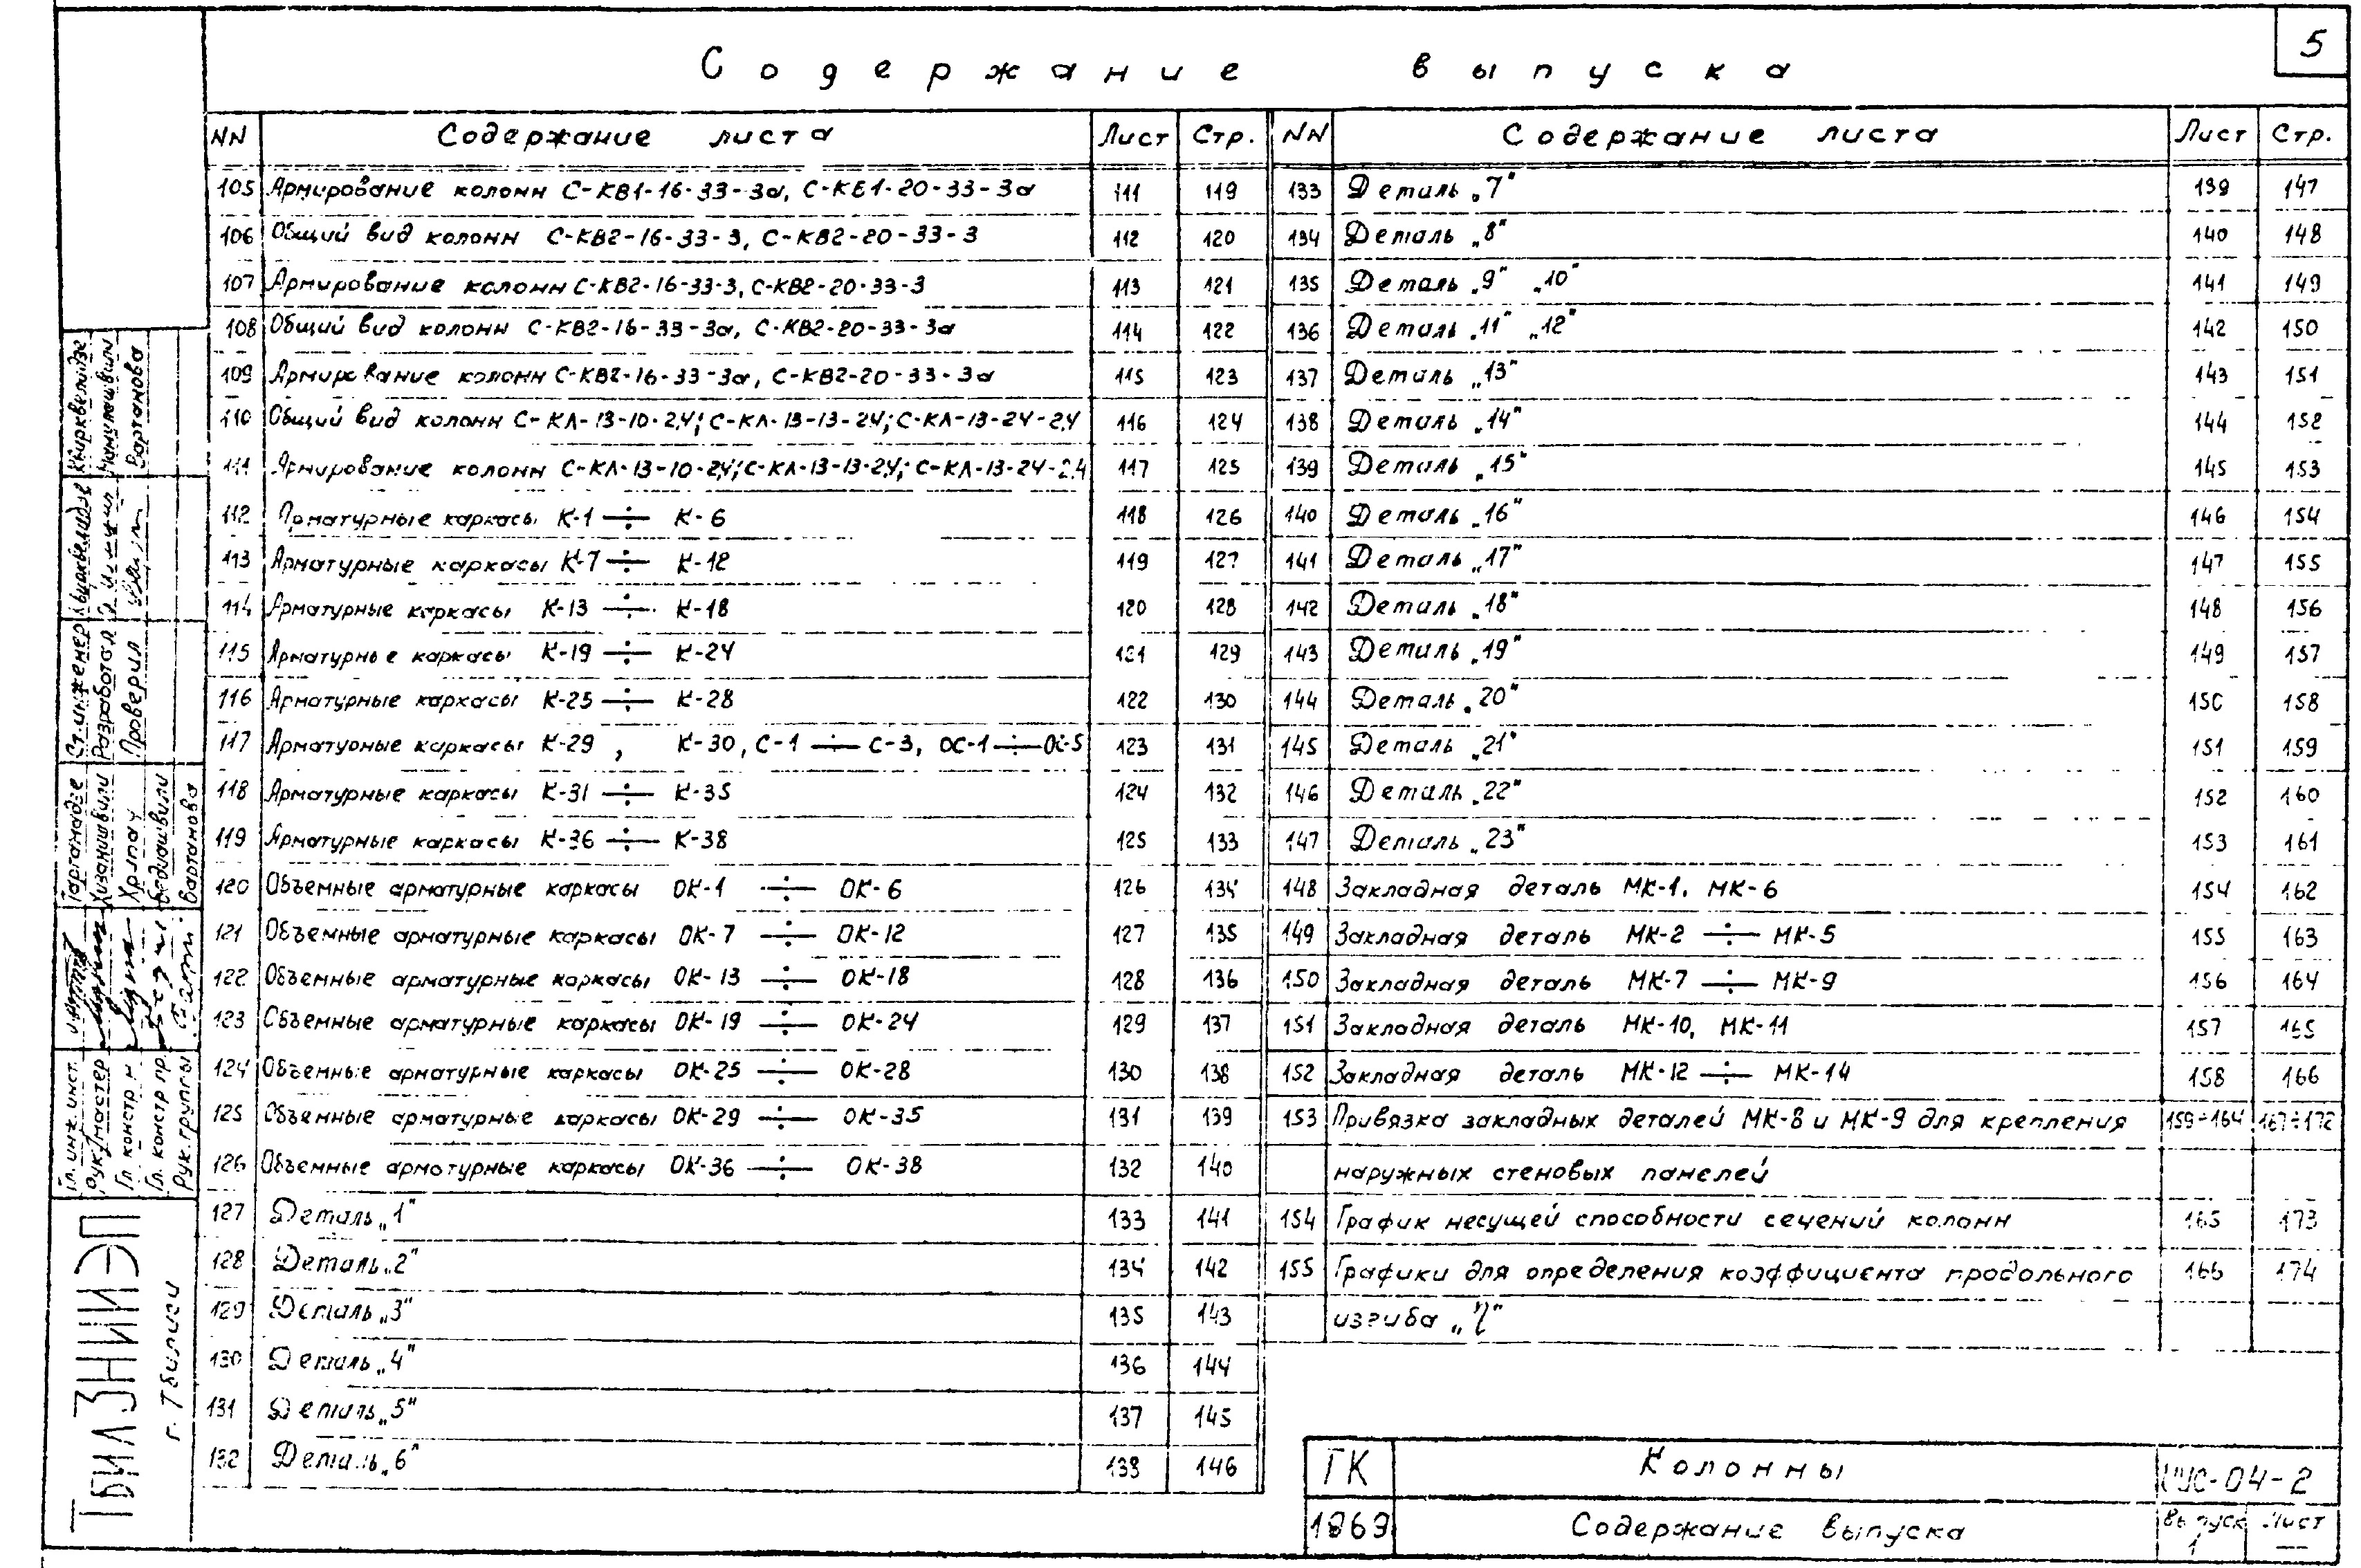 5
Содержание выпуска
NN Содержание листа Лист Стр.
105 Армирование колонн С-КВ1-16-33-3а, С-КВ1-20-33-3а 111 119
106 Общий вид колонн С-КВ2-16-33-3, С-КВ2-20-33-3 112 120
107 Армирование колонн С-КВ2-16-33-3, С-КВ2-20-33-3 113 121
108 Общий вид колонн С-КВ2-16-33-3а, С-КВ2-20-33-3а 114 122
109 Армирование колонн С-КВ2-16-33-3а, С-КВ2-20-33-3а 115 123
110 Общий вид колонн С-КЛ-13-10-24; С-КЛ-13-13-24; С-КЛ-13-24-24 116 124
111 Армирование колонн С-КЛ-13-10-24; С-КЛ-13-13-24; С-КЛ-13-24-24 117 125
112 Арматурные каркасы К-1 ÷ К-6 118 126
113 Арматурные каркасы К-7 ÷ К-12 119 127
114 Арматурные каркасы К-13 ÷ К-18 120 128
115 Арматурные каркасы К-19 ÷ К-24 121 129
116 Арматурные каркасы К-25 ÷ К-28 122 130
117 Арматурные каркасы К-29 , К-30, С-1 ÷ С-3, ОС-1 ÷ ОС-5 123 131
118 Арматурные каркасы К-31 ÷ К-35 124 132
119 Арматурные каркасы К-36 ÷ К-38 125 133
120 Объемные арматурные каркасы ОК-1 ÷ ОК-6 126 134
121 Объемные арматурные каркасы ОК-7 ÷ ОК-12 127 135
122 Объемные арматурные каркасы ОК-13 ÷ ОК-18 128 136
123 Объемные арматурные каркасы ОК-19 ÷ ОК-24 129 137
124 Объемные арматурные каркасы ОК-25 ÷ ОК-28 130 138
125 Объемные арматурные каркасы ОК-29 ÷ ОК-35 131 139
126 Объемные арматурные каркасы ОК-36 ÷ ОК-38 132 140
127 Деталь „1" 133 141
128 Деталь „2" 134 142
129 Деталь „3" 135 143
130 Деталь „4" 136 144
131 Деталь „5" 137 145
132 Деталь „6" 138 146
NN Содержание листа Лист Стр.
133 Деталь „7" 139 147
134 Деталь „8" 140 148
135 Деталь „9" „10" 141 149
136 Деталь „11" „12" 142 150
137 Деталь „13" 143 151
138 Деталь „14" 144 152
139 Деталь „15" 145 153
140 Деталь „16" 146 154
141 Деталь „17" 147 155
142 Деталь „18" 148 156
143 Деталь „19" 149 157
144 Деталь „20" 150 158
145 Деталь „21" 151 159
146 Деталь „22" 152 160
147 Деталь „23" 153 161
148 Закладная деталь МК-1, МК-6 154 162
149 Закладная деталь МК-2 ÷ МК-5 155 163
150 Закладная деталь МК-7 ÷ МК-9 156 164
151 Закладная деталь МК-10, МК-11 157 165
152 Закладная деталь МК-12 ÷ МК-14 158 166
153 Привязка закладных деталей МК-8 и МК-9 для крепления 159÷164 167÷172
наружных стеновых панелей
154 График несущей способности сечений колонн 165 173
155 Графики для определения коэффициента продольного 166 174
изгиба „η"
ТК Колонны ИИС-04-2
1969 Содержание выпуска Выпуск 1 Лист —
ТбилЗНИИЭП
г. Тбилиси
Гл. инж. инст. Гаргамадзе
Рук. мастер. Хизанишвили
Гл. констр. м.
Гл. констр. пр. Бедиашвили
Рук. группы Вартанова
Ст. инженер Квирквелидзе
Разработал
Проверил Вартанова